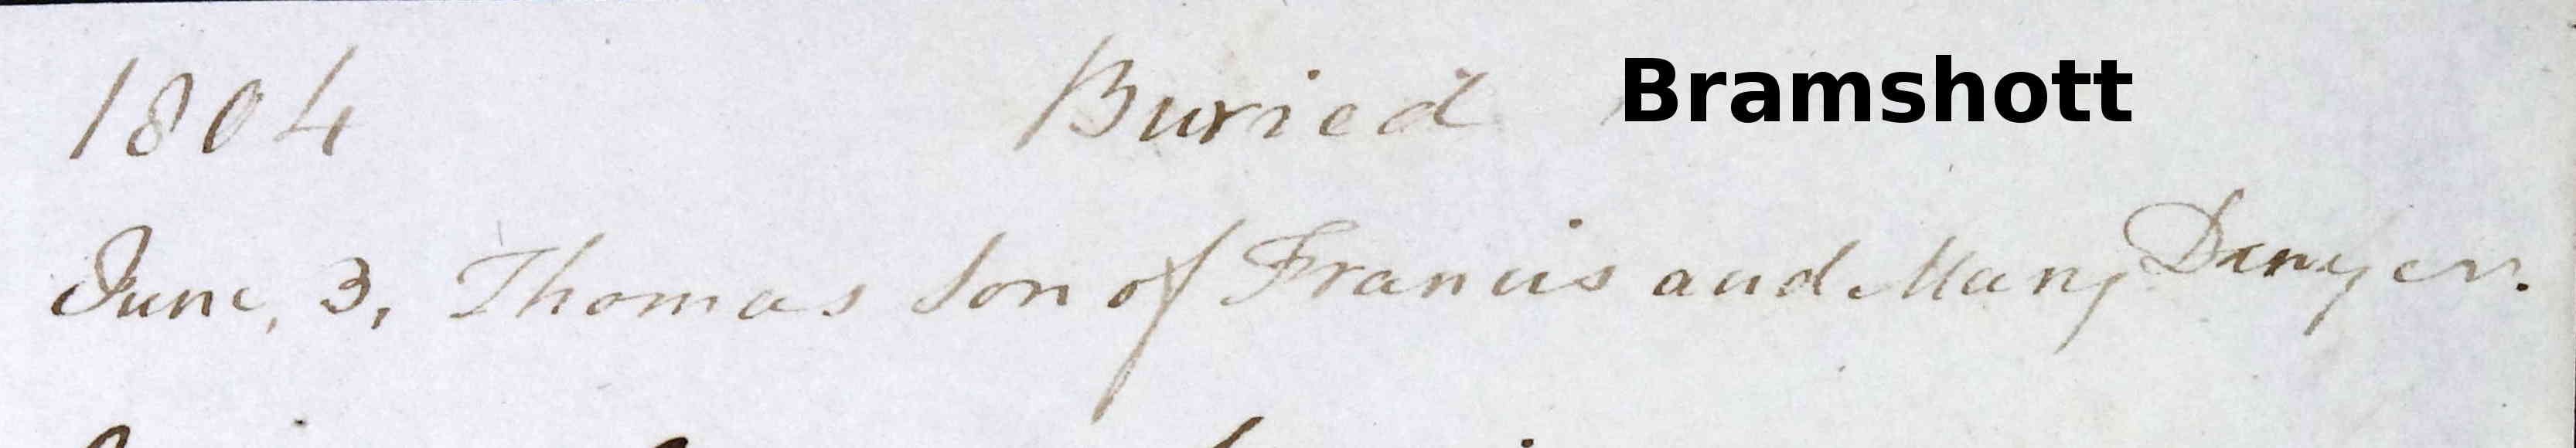 1804 Buried Bramshott
June, 3, Thomas Son of Francis and Mary Denyer.